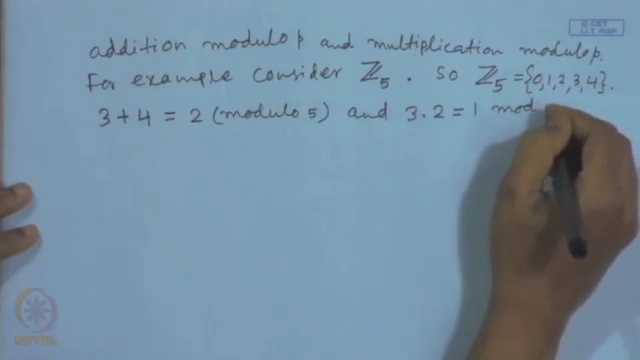 © CET
I.I.T. KGP
addition modulo p and multiplication modulo p.
For example consider ℤ₅ . So ℤ₅ = {0,1,2,3,4}.
3 + 4 = 2 (modulo 5) and 3 . 2 = 1 mod
NPTEL